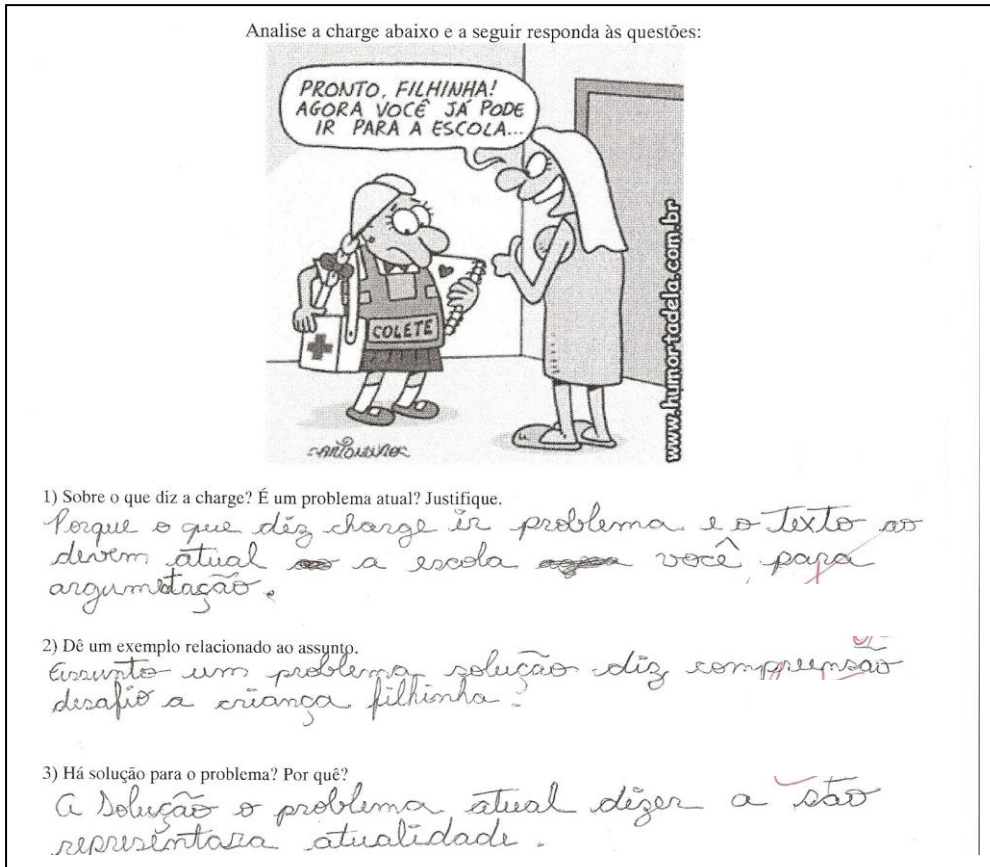 Analise a charge abaixo e a seguir responda às questões:
PRONTO, FILHINHA!
AGORA VOCÊ JÁ PODE
IR PARA A ESCOLA...
COLETE
www.humortadela.com.br
1) Sobre o que diz a charge? É um problema atual? Justifique.
Porque o que diz charge ir problema e o texto ao
devem atual a escola você papa
argumetação.
2) Dê um exemplo relacionado ao assunto.
um problema solução diz compreensão
desafio a criança filhinha.
3) Há solução para o problema? Por quê?
a Solução o problema atual dizer a são
atualidade.